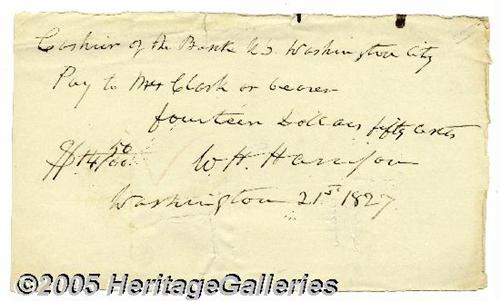 Cashier of the Bank U.S. Washington City
Pay to Mrs Clark or bearer
fourteen Dollars fifty cents
$14 50/00. W H. Harrison
Washington 21st 1827
©2005 HeritageGalleries